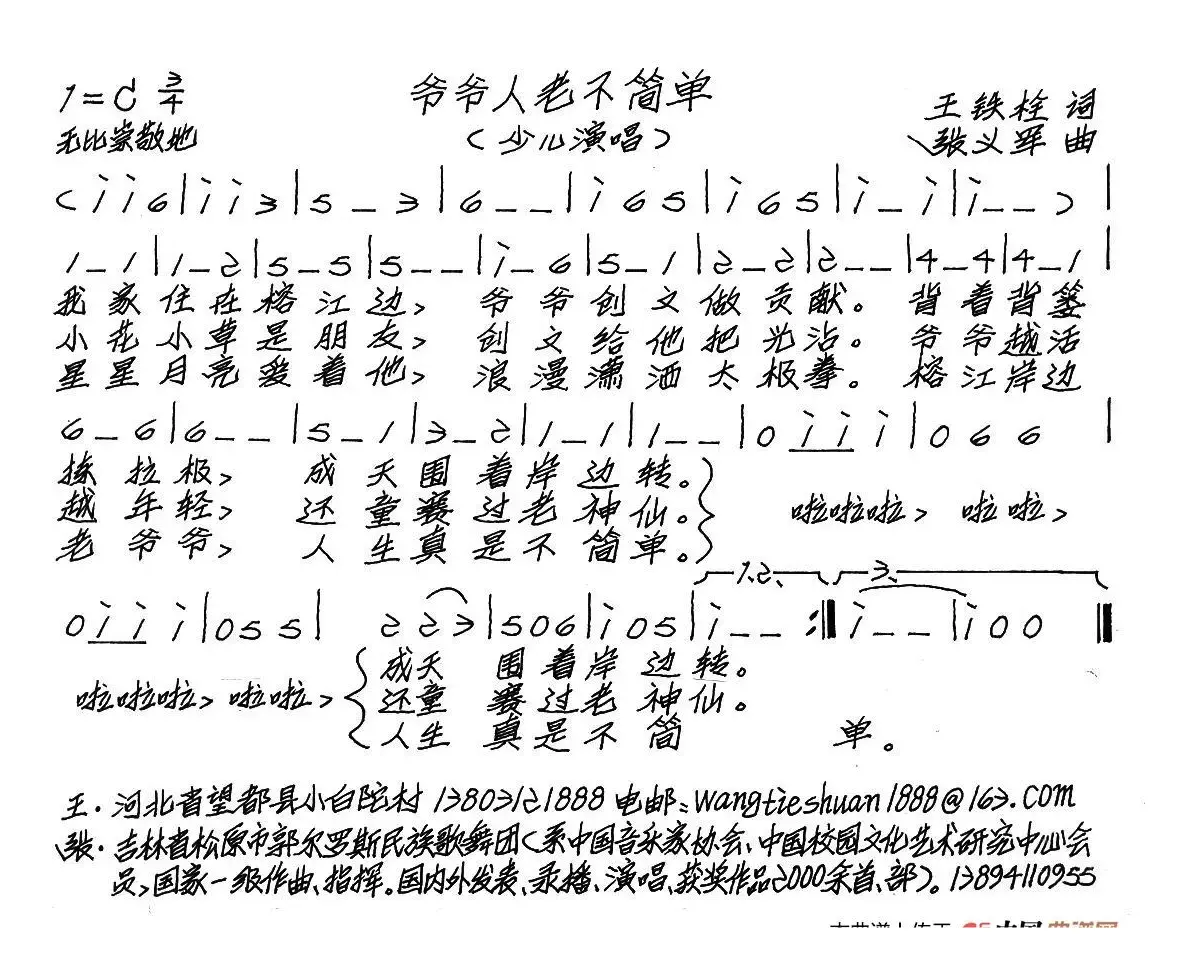 1=C 3/4
爷爷人老不简单
王铁栓 词
无比崇敬地
(少儿演唱)
张义军 曲
(i i 6|i i 3|5 – 3|6 – –|i 6 5|i 6 5|i – i|i – –)|
1 – 1|1 – 2|5 – 5|5 – –|i – 6|5 – 1|2 – 2|2 – –|4 – 4|4 – 1|
我家住在榕江边, 爷爷创文做贡献。背着背篓
小花小草是朋友, 创文给他把光沾。爷爷越活
星星月亮爱着他, 浪漫潇洒太极拳。榕江岸边
6 – 6|6 – –|5 – 1|3 – 2|1 – 1|1 – –|0 i i i|0 6 6|
拣垃圾, 成天围着岸边转。
越年轻, 还童赛过老神仙。 啦啦啦, 啦啦,
老爷爷, 人生真是不简单。
1.2. 3.
0 i i i|0 5 5| 2 2 3|5 0 6|i 0 5|i – – :‖i – –|i 0 0‖
成天 围着岸边转。
啦啦啦, 啦啦, 还童 赛过老神仙。
人生 真是不简 单。
王.河北省望都县小白陀村 13803121888 电邮:wangtieshuan1888@163.com
张.吉林省松原市郭尔罗斯民族歌舞团(系中国音乐家协会、中国校园文化艺术研究中心会
员,国家一级作曲、指挥。国内外发表、录播、演唱、获奖作品2000余首、部)。13894110955